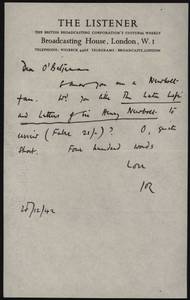 THE LISTENER
THE BRITISH BROADCASTING CORPORATION'S CULTURAL WEEKLY
Broadcasting House, London, W. 1
TELEPHONE, WELBECK 4468 TELEGRAMS: BROADCASTS, LONDON
Dear O'Betjeman
I know you are a Newbolt-
fan. Wd you like The Later Life
and Letters of Sir Henry Newbolt to
review (Faber 21/-)? O, quite
short. Four hundred words
Love
JRA
28/12/42